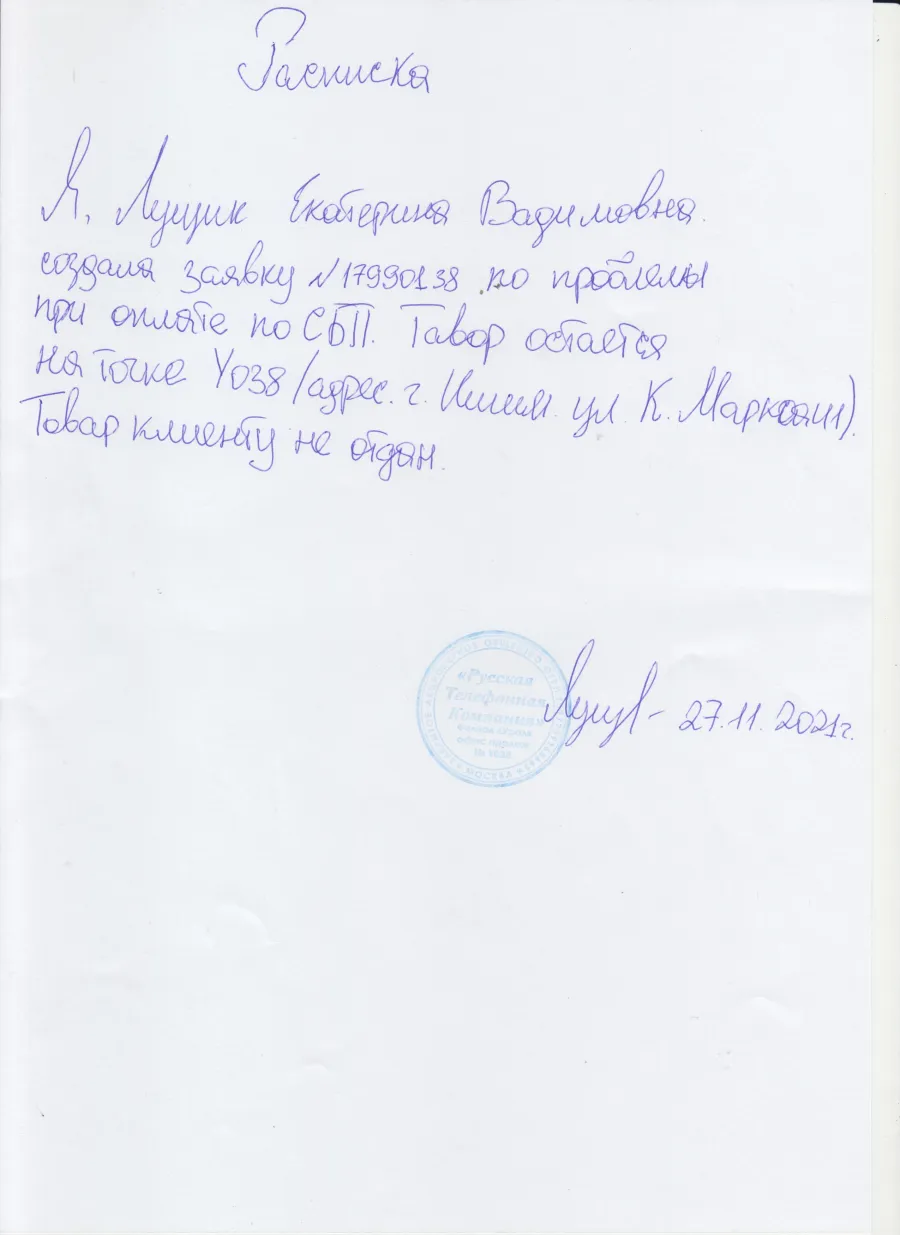 Расписка
Я, Лущик Екатерина Вадимовна.
создала заявку №17990138 по проблемы
при оплате по СБП. Тавар остается
на точке У038 (адрес. г. Ишим. ул. К. Маркса
Товар клиенту не отдан.
«Русская
Телефонная
Компания»
МОСКВА
27.11.2021г.